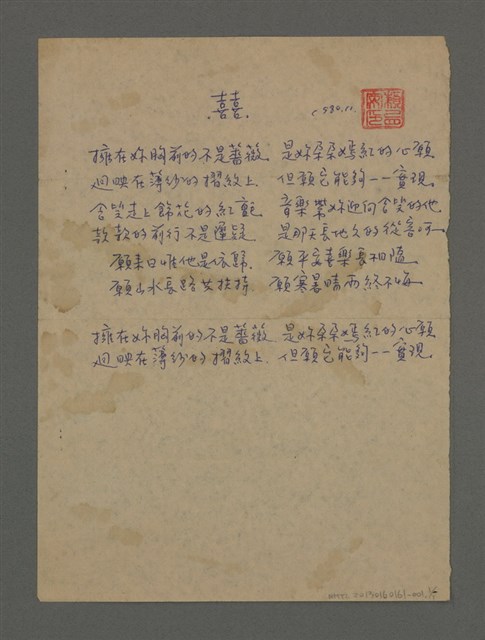 .囍.
1980.11.
擁在妳胸前的不是薔薇 是妳朵朵嫣紅的心願
迴映在薄紗的摺紋上 但願它能夠一一實現
含笑走上餙花的紅氈 音樂帶妳迎向含笑的他
款款的前行不是遲疑 是那天長地久的從容
願來日惟他是依歸 願平安喜樂長相隨
願山水長路共扶持 願寒暑晴雨終不悔
擁在妳胸前的不是薔薇 是妳朵朵嫣紅的心願
迴映在薄紗的摺紋上 但願它能夠一一實現